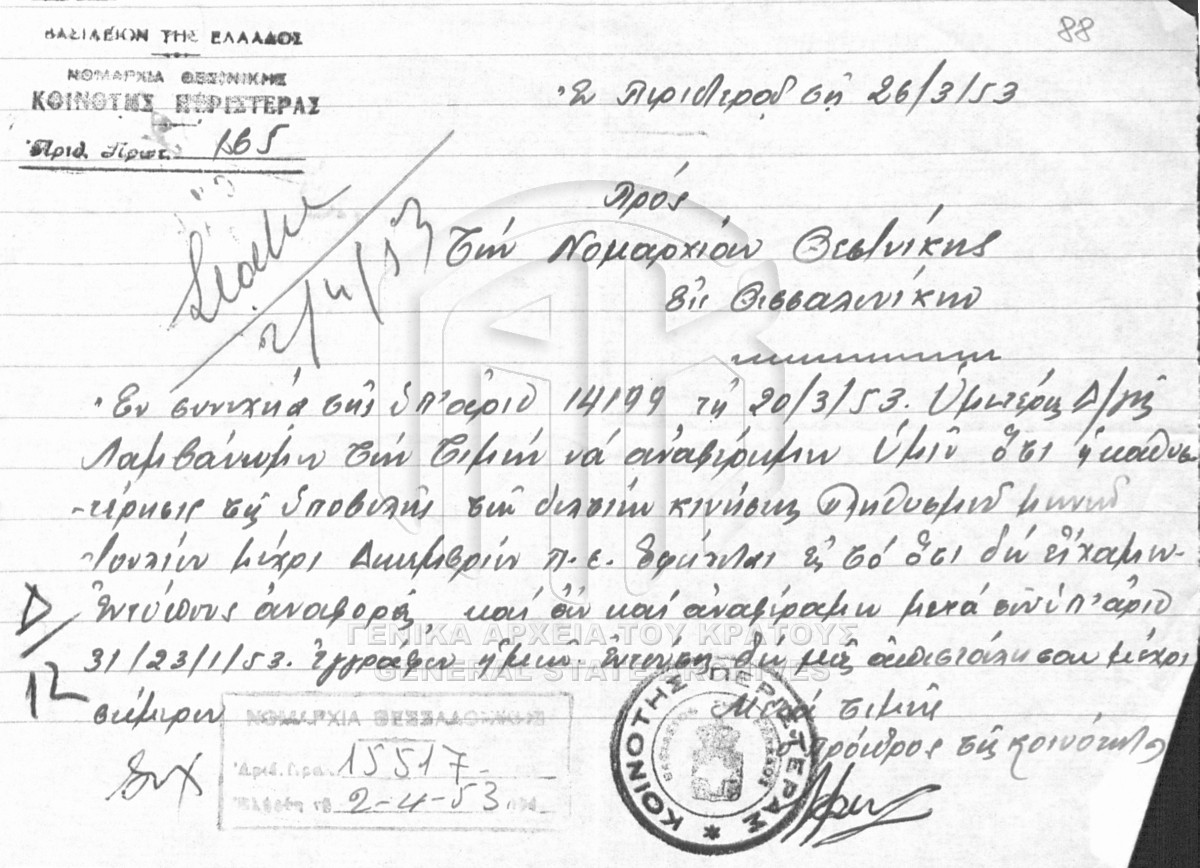 88
ΒΑΣΙΛΕΙΟΝ ΤΗΣ ΕΛΛΑΔΟΣ
ΝΟΜΑΡΧΙΑ ΘΕΣ)ΝΙΚΗΣ
ΚΟΙΝΟΤΗΣ ΠΕΡΙΣΤΕΡΑΣ
Αριθ. Πρωτ. 165
Ἐν Περιστερᾷ τῇ 26/3/53
Πρός
Τήν Νομαρχίαν Θεσ/νίκης
Εἰς Θεσσαλονίκην
2/4/53
Ἐν συνεχείᾳ τῆς ὑπ' ἀριθ 14199 τῆς 20/3/53. Ὑμετέρας Δ/γῆς
Λαμβάνωμεν τήν τιμήν νά ἀναφέρωμεν Ὑμῖν ὅτι ἡ καθυσ
-τέρησις τῆς ὑποβολῆς τῶν δελτίων κινήσεως πληθυσμοῦ μηνός
Ἰουλίου μέχρι Δεκεμβρίου π.ε. ὀφείλεται εἰς τό ὅτι δέν εἴχαμεν
ἐντύπους ἀναφοράς, καί ἐν καί ἀναφέραμεν μετά τοῦ ὑπ' ἀριθ
31/23/1/53. ἐγγράφου ἡμῶν ἐντύπους δέν μᾶς ἀπεστάλησαν μέχρι
σήμερον
Μετά τιμῆς
Ὁ πρόεδρος τῆς κοινότητος
Δ/
12
ΝΟΜΑΡΧΙΑ ΘΕΣΣΑΛΟΝΙΚΗΣ
Ἀριθ. Πρωτ. 15517
Ἐλήφθη τῇ 2-4-53
ΚΟΙΝΟΤΗΣ ΠΕΡΙΣΤΕΡΑΣ
ΓΕΝΙΚΑ ΑΡΧΕΙΑ ΤΟΥ ΚΡΑΤΟΥΣ
GENERAL STATE ARCHIVES